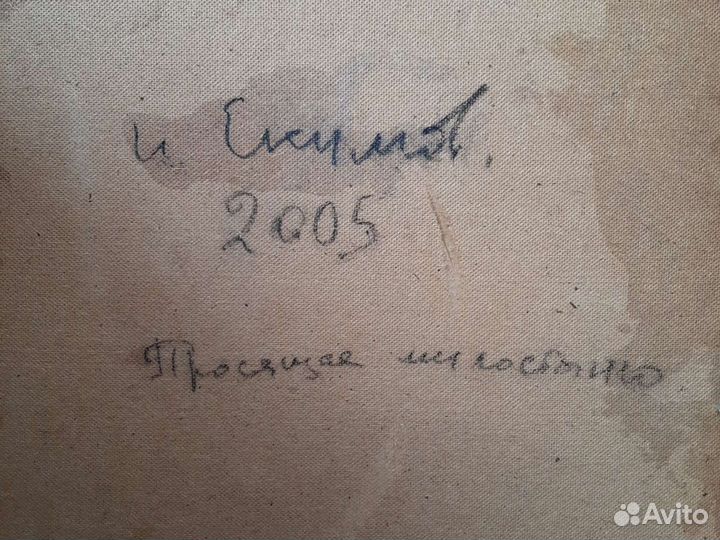 и Екимов.
2005
Просящая милостыню
Avito